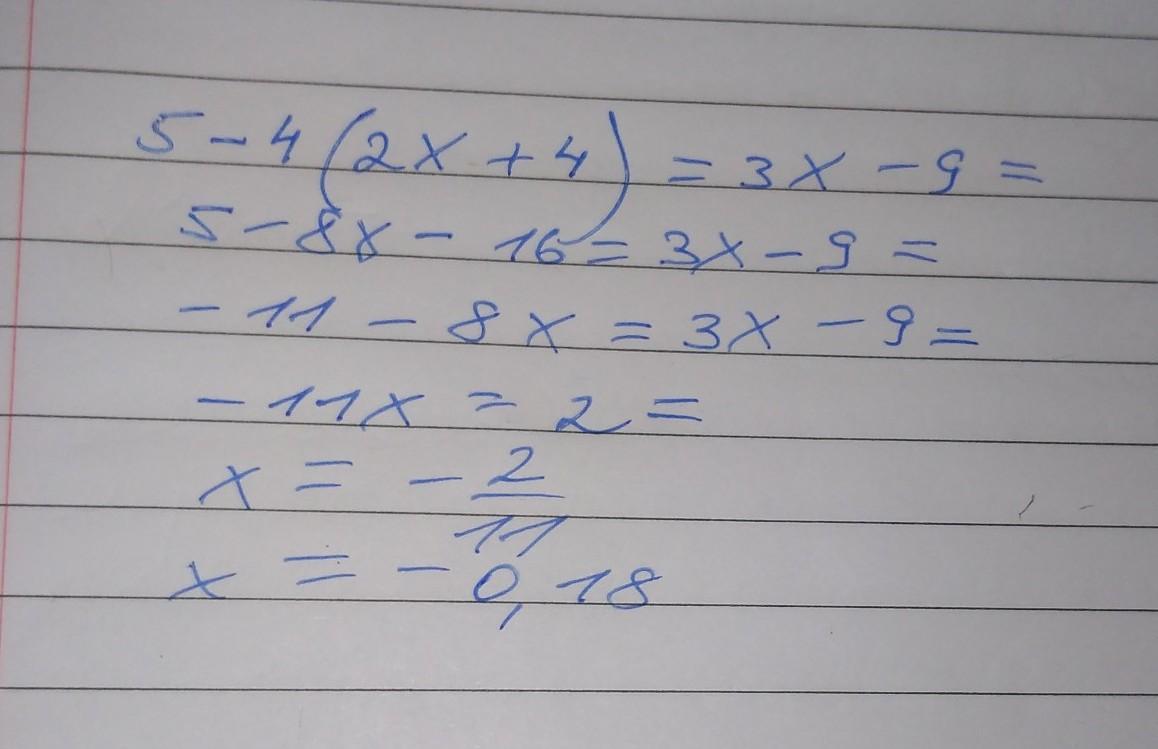 5 - 4(2x + 4) = 3x - 9 =
5 - 8x - 16 = 3x - 9 =
- 11 - 8x = 3x - 9 =
- 11x = 2 =
x = - 2/11
x = - 0,18